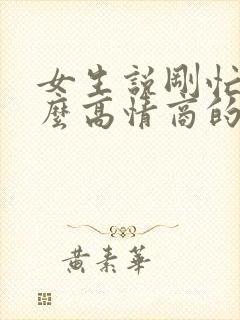 女生說剛忙
麼高情商的
黃素華